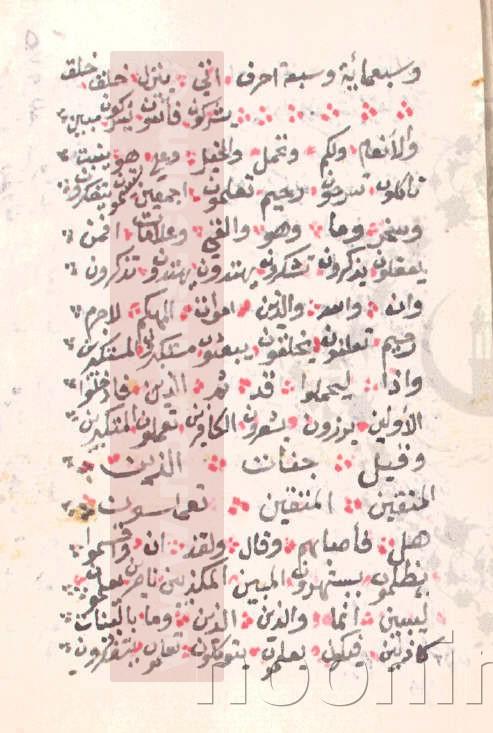 وسبعمائة وسبعة احرف اتى ينزل خلق خلق
يشركون فاتقون يشركون مبين
والأنعام ولكم وتحمل والخيل وعلى هو ينبت
تأكلون تسرحون رحيم تعلمون اجمعين تسيمون يتفكرون
وسخر وما وهو والقى وعلامات افمن
يعقلون يذكرون تشكرون يهتدون يهتدون تذكرون
وان والله والذين اموات الهكم لاجرم
رحيم تعلنون يخلقون يبعثون مستكبرون المستكبرين
واذا ليحملوا قد ثم الذين فادخلوا
الأولين يزرون يشعرون الكافرين تعملون المتكبرين
وقيل جنات الذين
المتقين المتقين تعملون
هل فأصابهم وقال ولقد ان واقسموا
يظلمون يستهزؤن المبين المكذبين ناصرين يعلمون
ليبين انما والذين الذين وما بالبينات
كاذبين فيكون يعلمون يتوكلون تعلمون يتفكرون
noormags